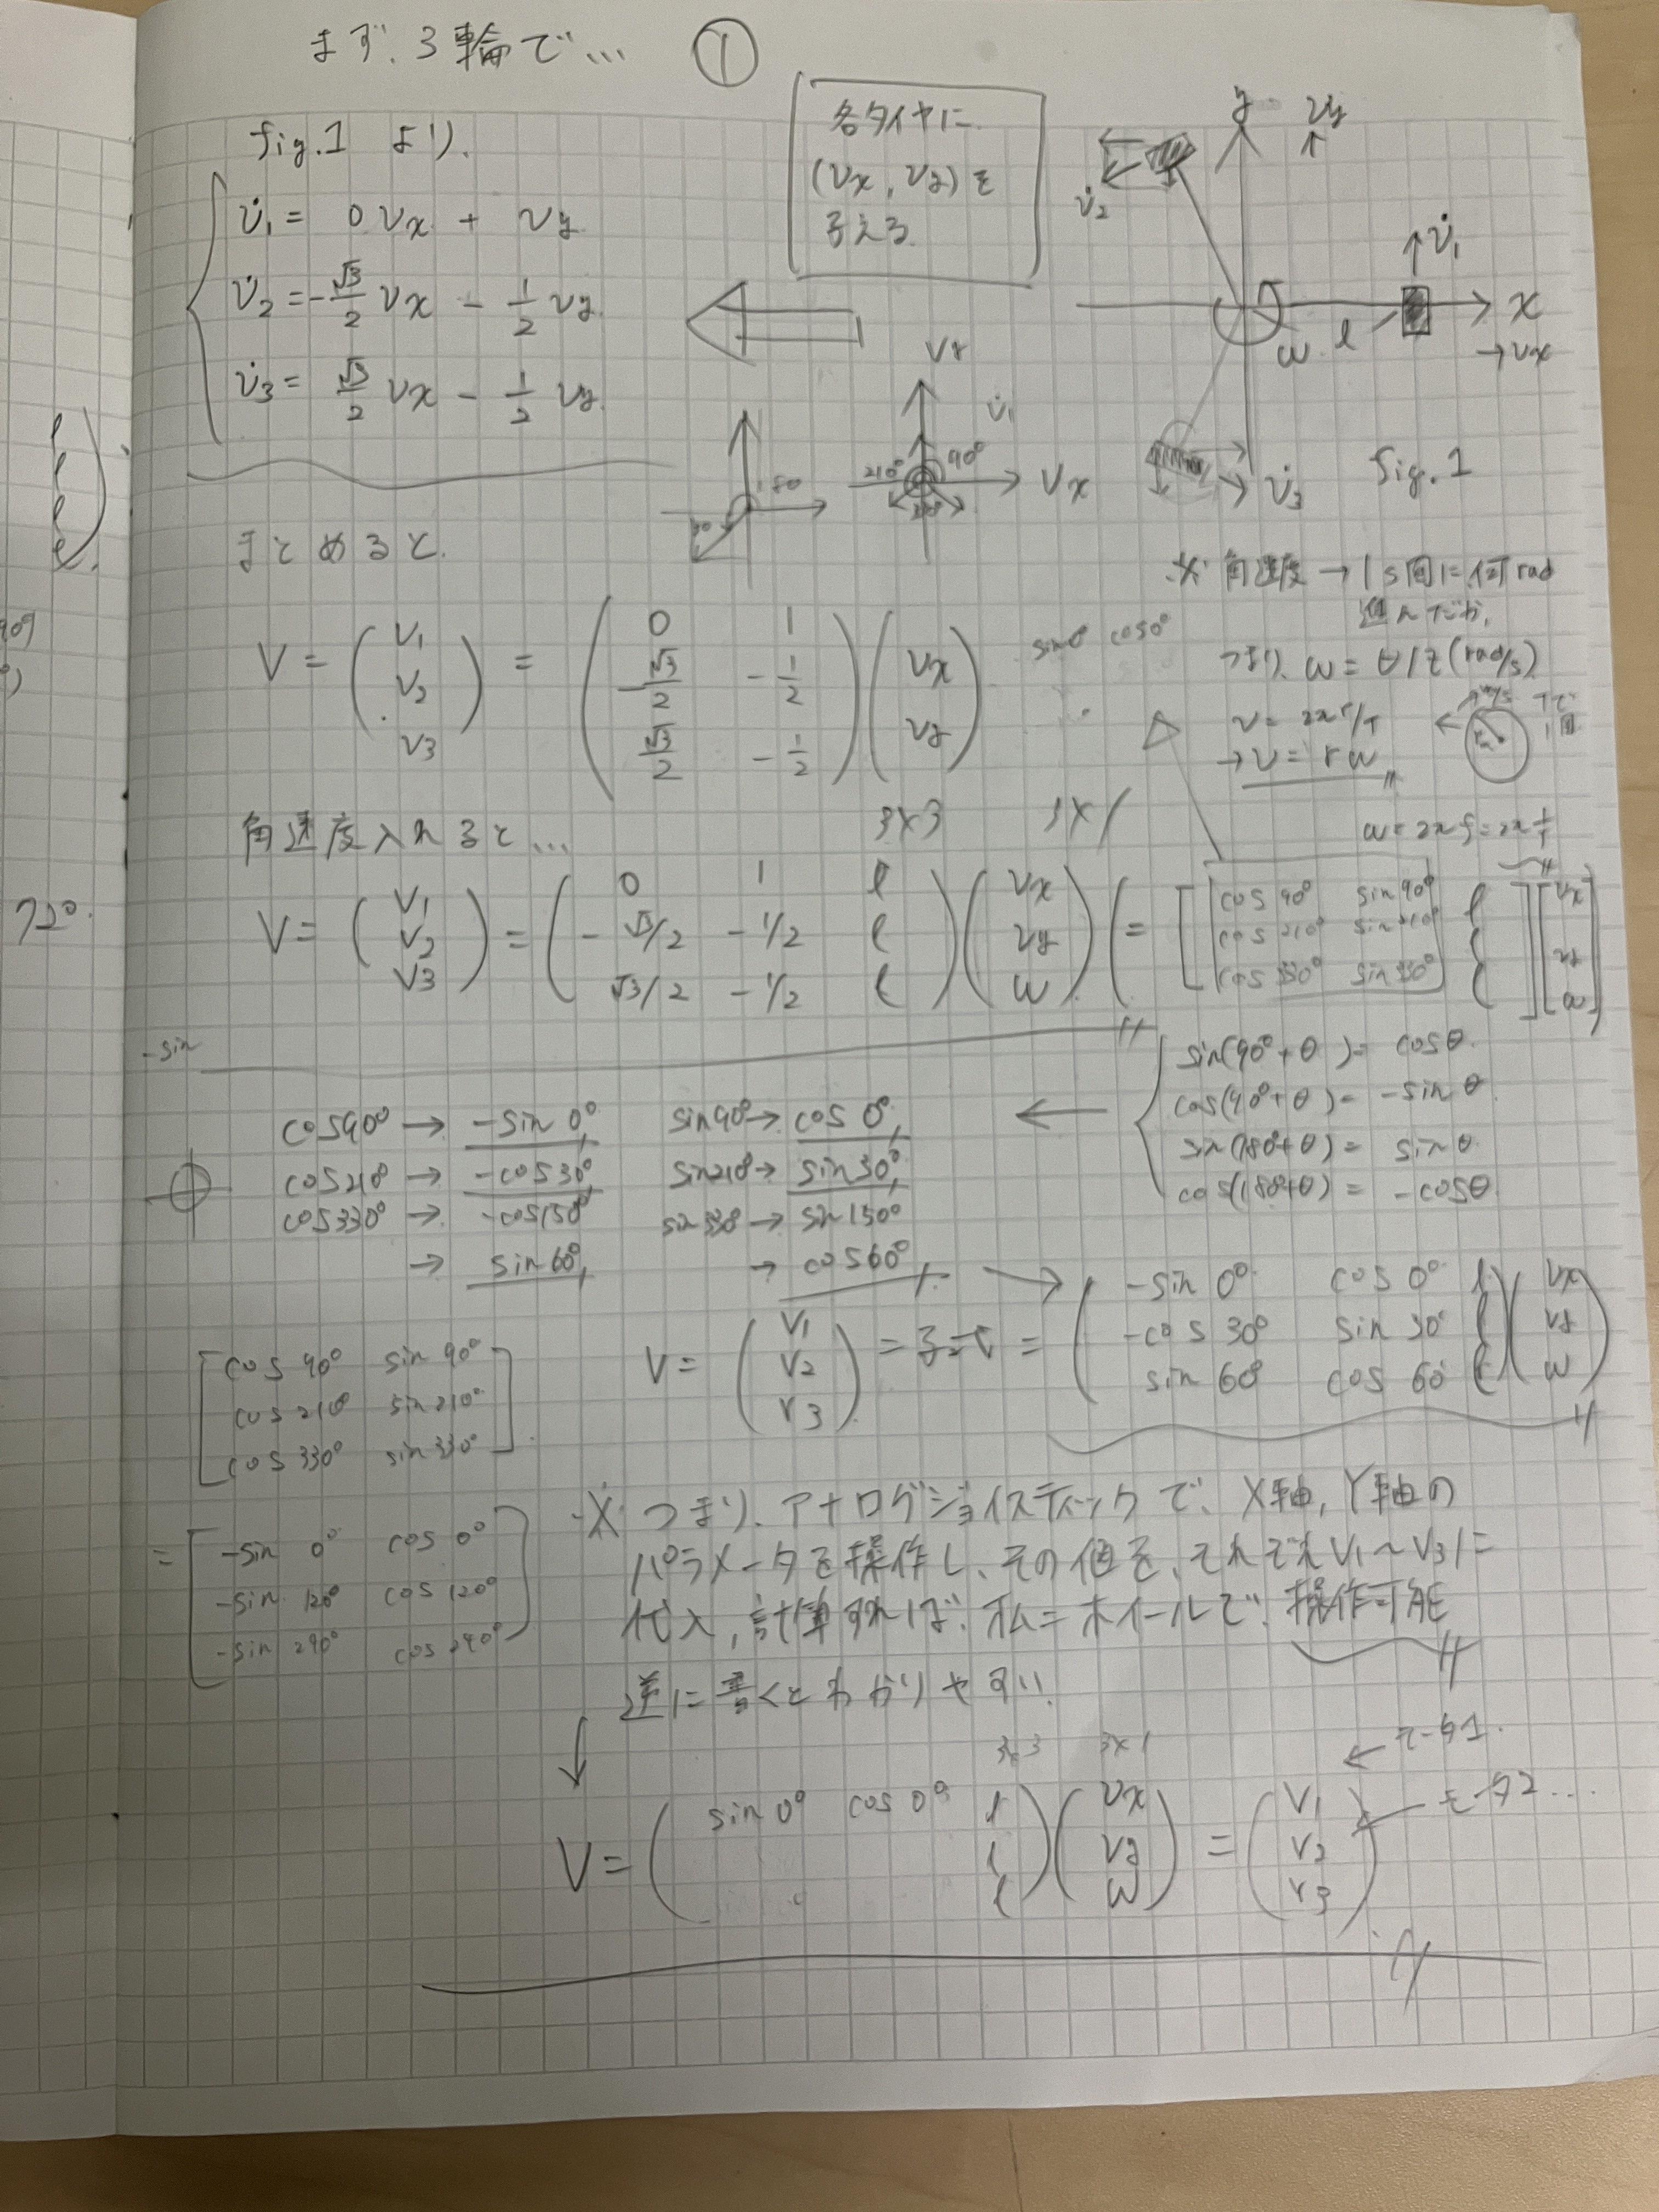 まず、3輪で… ①
fig.1 より、
v̇1 = 0 vx + vy
v̇2 = -√3/2 vx - 1/2 vy
v̇3 = √3/2 vx - 1/2 vy
各タイヤに
(vx, vy)を
与える
y vy
v̇2
v̇1
x
ω l
→vx
v̇3
fig.1
vy
v̇1
210° 90°
vx
まとめると、
V = (v1 v2 v3) = (0 1
-√3/2 -1/2
√3/2 -1/2) (vx vy)
sin0° cos0°
※ 角速度 → 1s間に何rad
進んだか、
つまり、ω = θ/t (rad/s)
v = 2πr/T
→ v = rω
ω = 2πf = 2π 1/T
角速度入れると…
3×3 3×1
V = (v1 v2 v3) = (0 1 l
-√3/2 -1/2 l
√3/2 -1/2 l) (vx vy ω)
(= [cos90° sin90° l
cos210° sin210° l
cos330° sin330° l] [vx vy ω])
-sin
sin(90°+θ) = cosθ
cos(90°+θ) = -sinθ
sin(180°+θ) = sinθ
cos(180°+θ) = -cosθ
cos90° → -sin0° sin90° → cos0°
cos210° → -cos30° sin210° → sin30°
cos330° → -cos150° sin330° → sin150°
→ sin60° → cos60°
V = (v1 v2 v3) = 与式 = (-sin0° cos0° l
-cos30° sin30° l
sin60° cos60 l) (vx vy ω)
[cos90° sin90°
cos210° sin210°
cos330° sin330°]
= [-sin 0° cos 0°
-sin 120° cos 120°
-sin 240° cos 240°]
※ つまり、アナログジョイスティックで、X軸,Y軸の
パラメータを操作し、その値を、それぞれV1~V3に
代入,計算すれば、オムニホイールで、操作可能
逆に書くとわかりやすい
3×3 3×1
V = (sin0° cos0° l
l
l) (vx vy ω) = (v1 v2 v3)
← モータ1.
モータ2…
72°